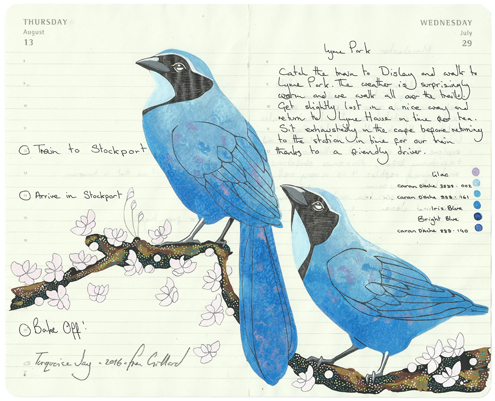 THURSDAY
August
13
Train to Stockport
Arrive in Stockport
Bake Off!
Turquoise Jay - 2016 - Fran
WEDNESDAY
July
29
Lyme Park
Catch the train to Disley and walk to
Lyme Park. The weather is surprisingly
warm and we walk all over the trails.
Get slightly lost in a nice way and
return to Lyme House in time for tea.
Sit exhaustedly in the cafe before returning
to the station in time for our train
thanks to a friendly driver.
Lilac
caran D'Ache 3888 - 002
caran D'Ache 888 - 161
Iris Blue
Bright Blue
caran D'Ache 888 - 140